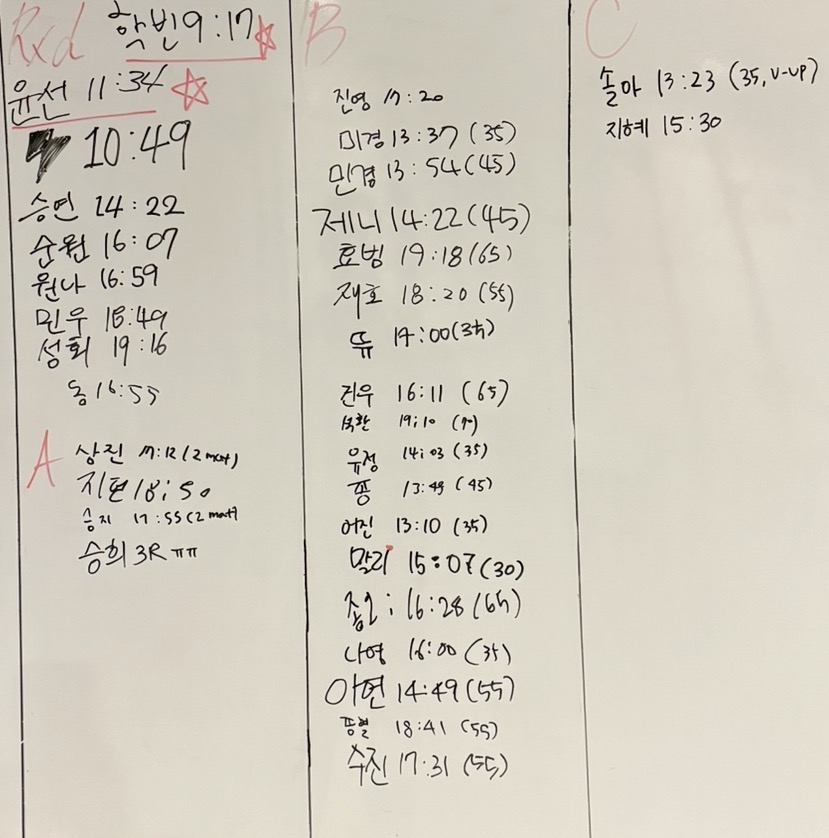 Rxd 학빈 9:17
윤선 11:34
10:49
승연 14:22
순원 16:07
원나 16:59
민우 18:49
성회 19:16
동 16:55
A
상진 17:12 (2 mat)
지현 18:50
승지 17:55 (2 mat)
승희 3R ㅠㅠ
B
진영 17:20
미경 13:37 (35)
민경 13:54 (45)
제니 14:22 (45)
효빙 19:18 (65)
재호 18:20 (55)
뜌 14:00 (35)
진우 16:11 (65)
19:10
유정 14:03 (35)
퐁 13:49 (45)
어진 13:10 (35)
말리 15:07 (30)
16:28 (65)
나영 16:00 (35)
아연 14:49 (55)
18:41 (55)
수진 17:31 (55)
C
솔아 13:23 (35, V-UP)
지혜 15:30